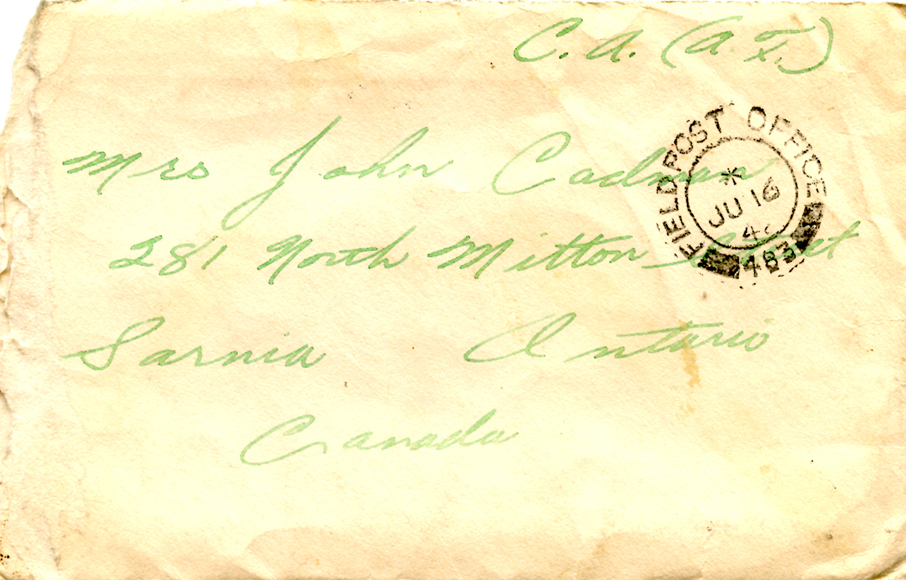 C. A. (A. F.)
Mrs John Cadman
281 North Mitton Street
Sarnia Ontario
Canada
FIELD POST OFFICE
*
JU 16
483